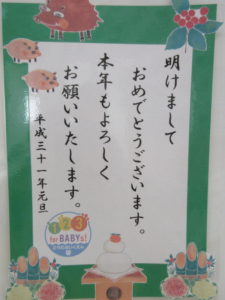 明けまして
おめでとうございます。
本年もよろしく
お願いいたします。
平成三十一年元旦
1 2 3
for BABYs!